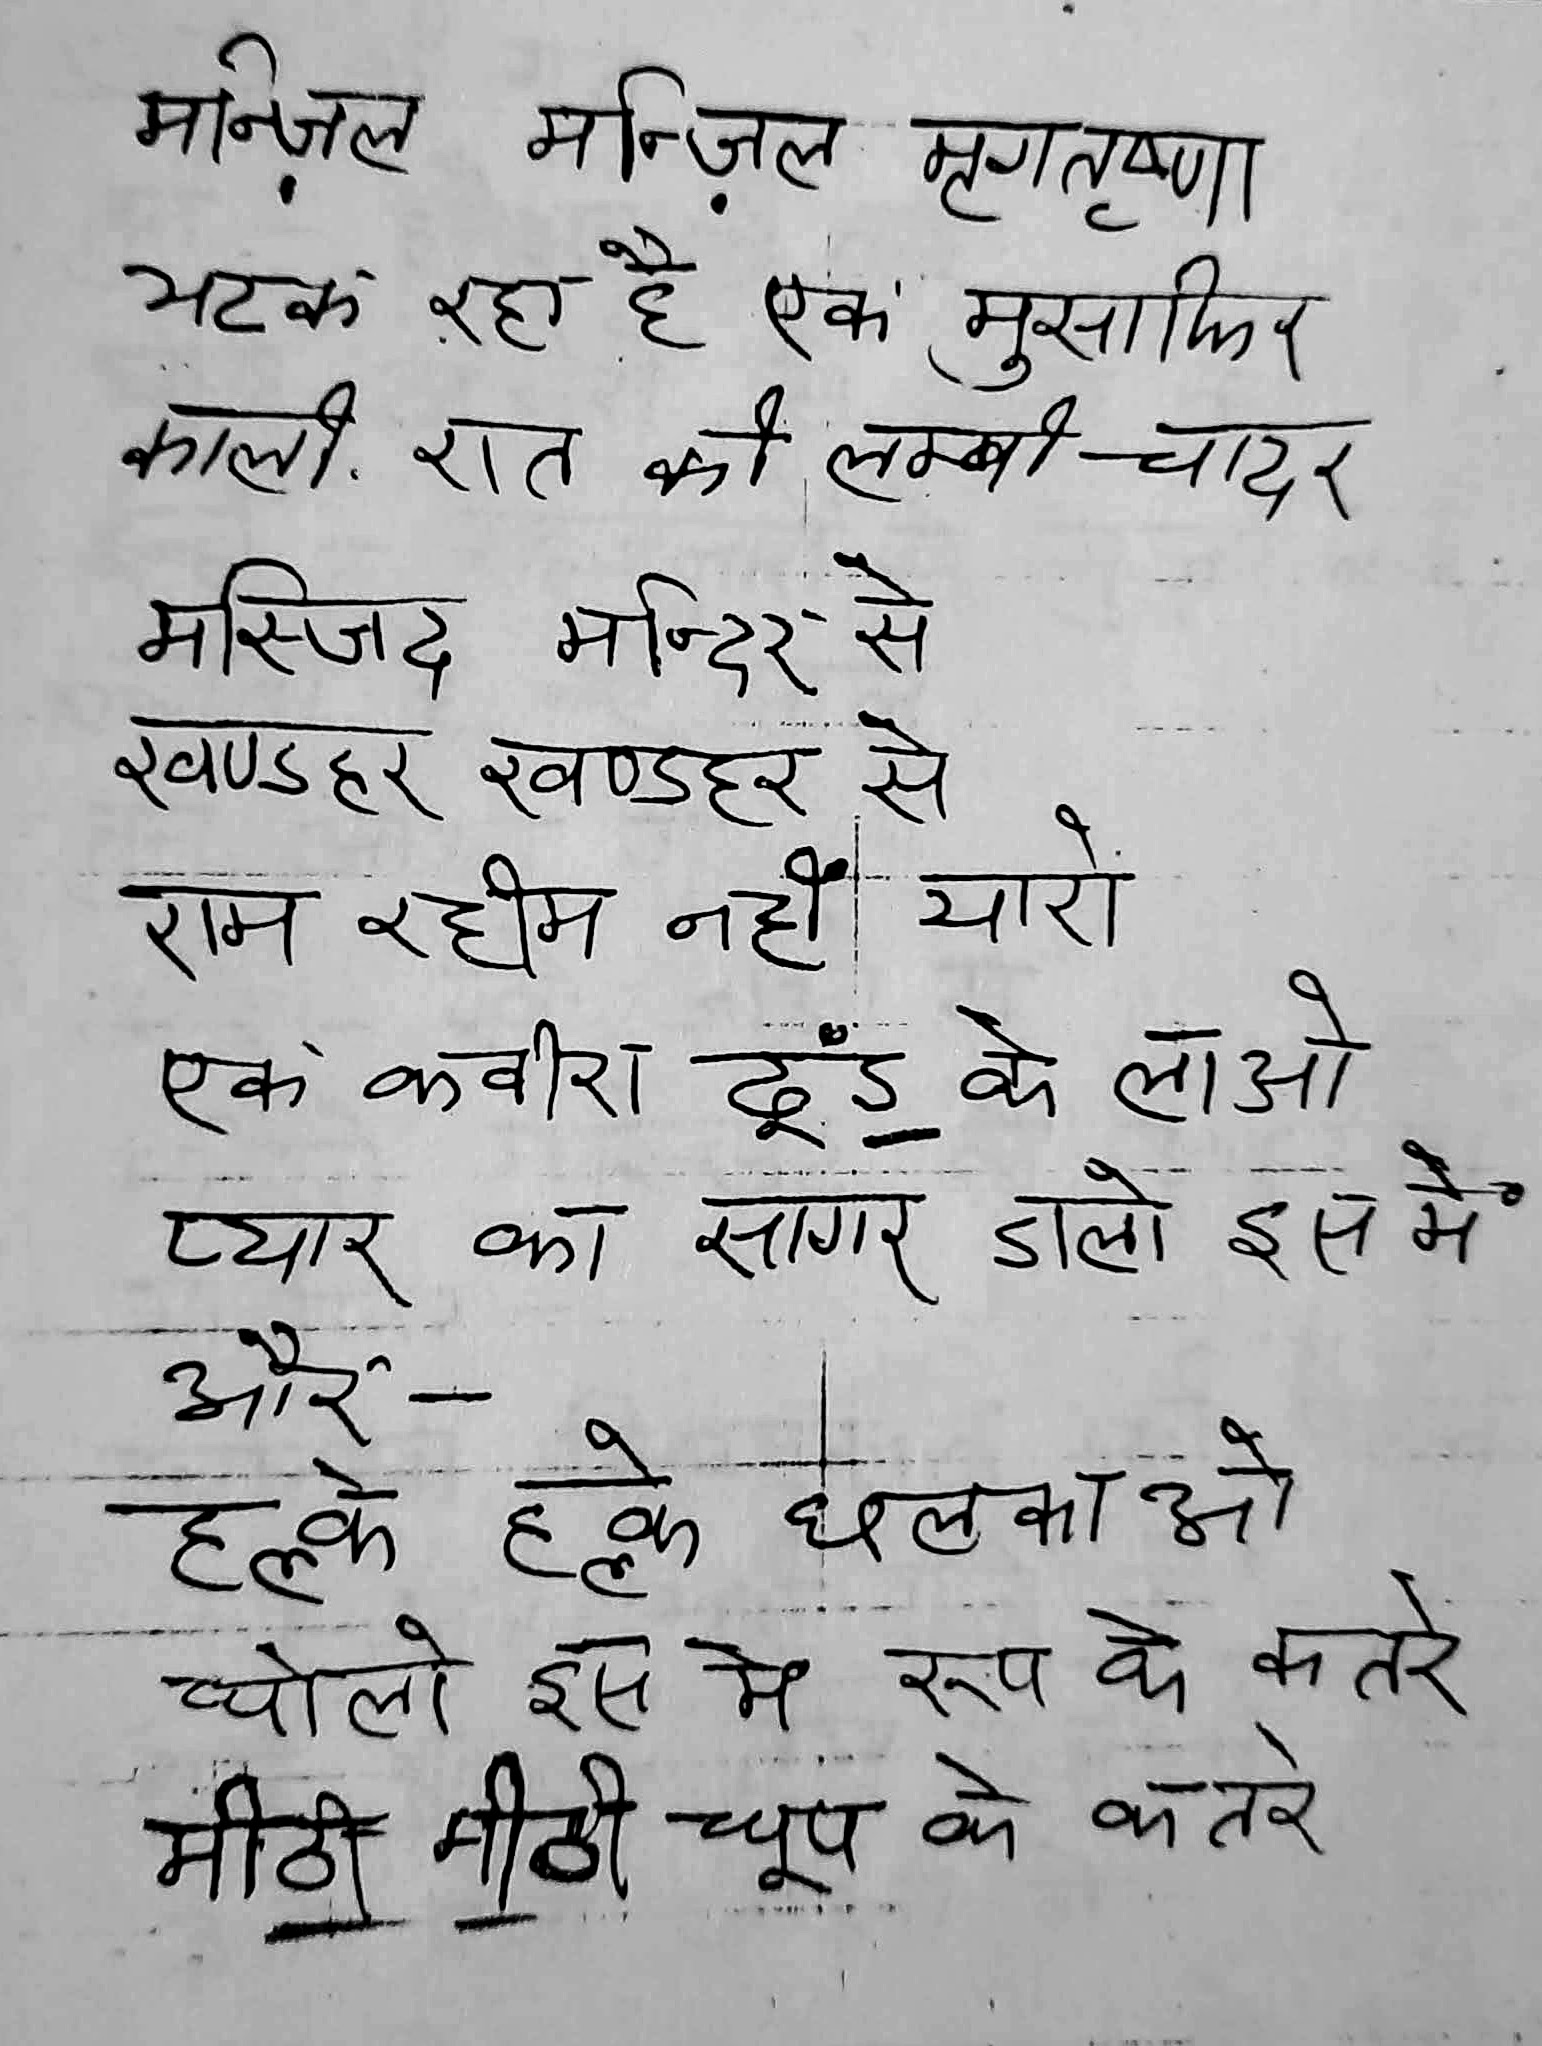 मन्ज़िल मन्ज़िल मृगतृष्णा
भटक रहा है एक मुसाफिर
काली रात की लम्बी चादर
मस्जिद मन्दिर से
खण्डहर खण्डहर से
राम रहीम नहीं यारो
एक कबीरा ढूंड के लाओ
प्यार का सागर डालो इस में
और –
हल्के हल्के छलकाओ
घोलो इस मे रूप के कतरे
मीठी मीठी धूप के कतरे